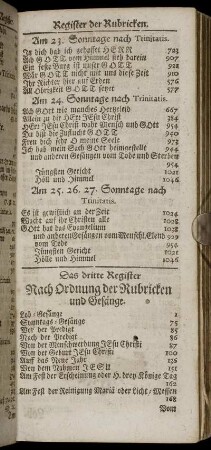 Register der Rubricken.
Am 23. Sonntage nach Trinitatis.
In dich hab ich gehoffet HERR 703
Ach GOTT vom Himmel sieh darein 907
Ein feste Burg ist unser GOTT
Wär GOTT nicht mit uns diese Zeit 910
Ihr Richter hier auf Erden 576
All Obrigkeit GOTT setzet
Am 24. Sonntage nach Trinitatis.
Ach GOtt wie manches Hertzeleid 667
Allein zu dir HErr JEsu Christ 384
HErr JEsu Christ wahr Mensch und GOtt 954
Du bist die Zuflucht GOTT
Freu dich sehr O meine Seele
Ich hab mein Sach Gott heimgestellt
und anderen Gesängen vom Tode und Sterben
954
Jüngsten Gericht
Höll und Himmel 1046
Am 25. 26. 27. Sonntage nach
Trinitatis.
Es ist gewißlich an der Zeit 1024
Wacht auf ihr Christen alle 1028
GOtt hat das Evangelium
und anderen Gesängen vom Menschl. Elend 909
vom Tode 954
Jüngsten Gericht
Hölle und Himmel 1046
Das dritte Register
Nach Ordnung der Rubricken
und Gesänge.
Lob-Gesänge 1
Sonntags-Gesänge 75
Vor der Predigt 85
Nach der Predigt 86
Von der Menschwerdung JEsu Christi 87
Von der Geburt JEsu Christi 100
Auff das Neue Jahr 126
Von dem Nahmen JESU 151
Am Fest der Erscheinung oder H. drey Könige Tag
162
Am Fest der Reinigung Mariä oder Licht-Messen
168
Vom